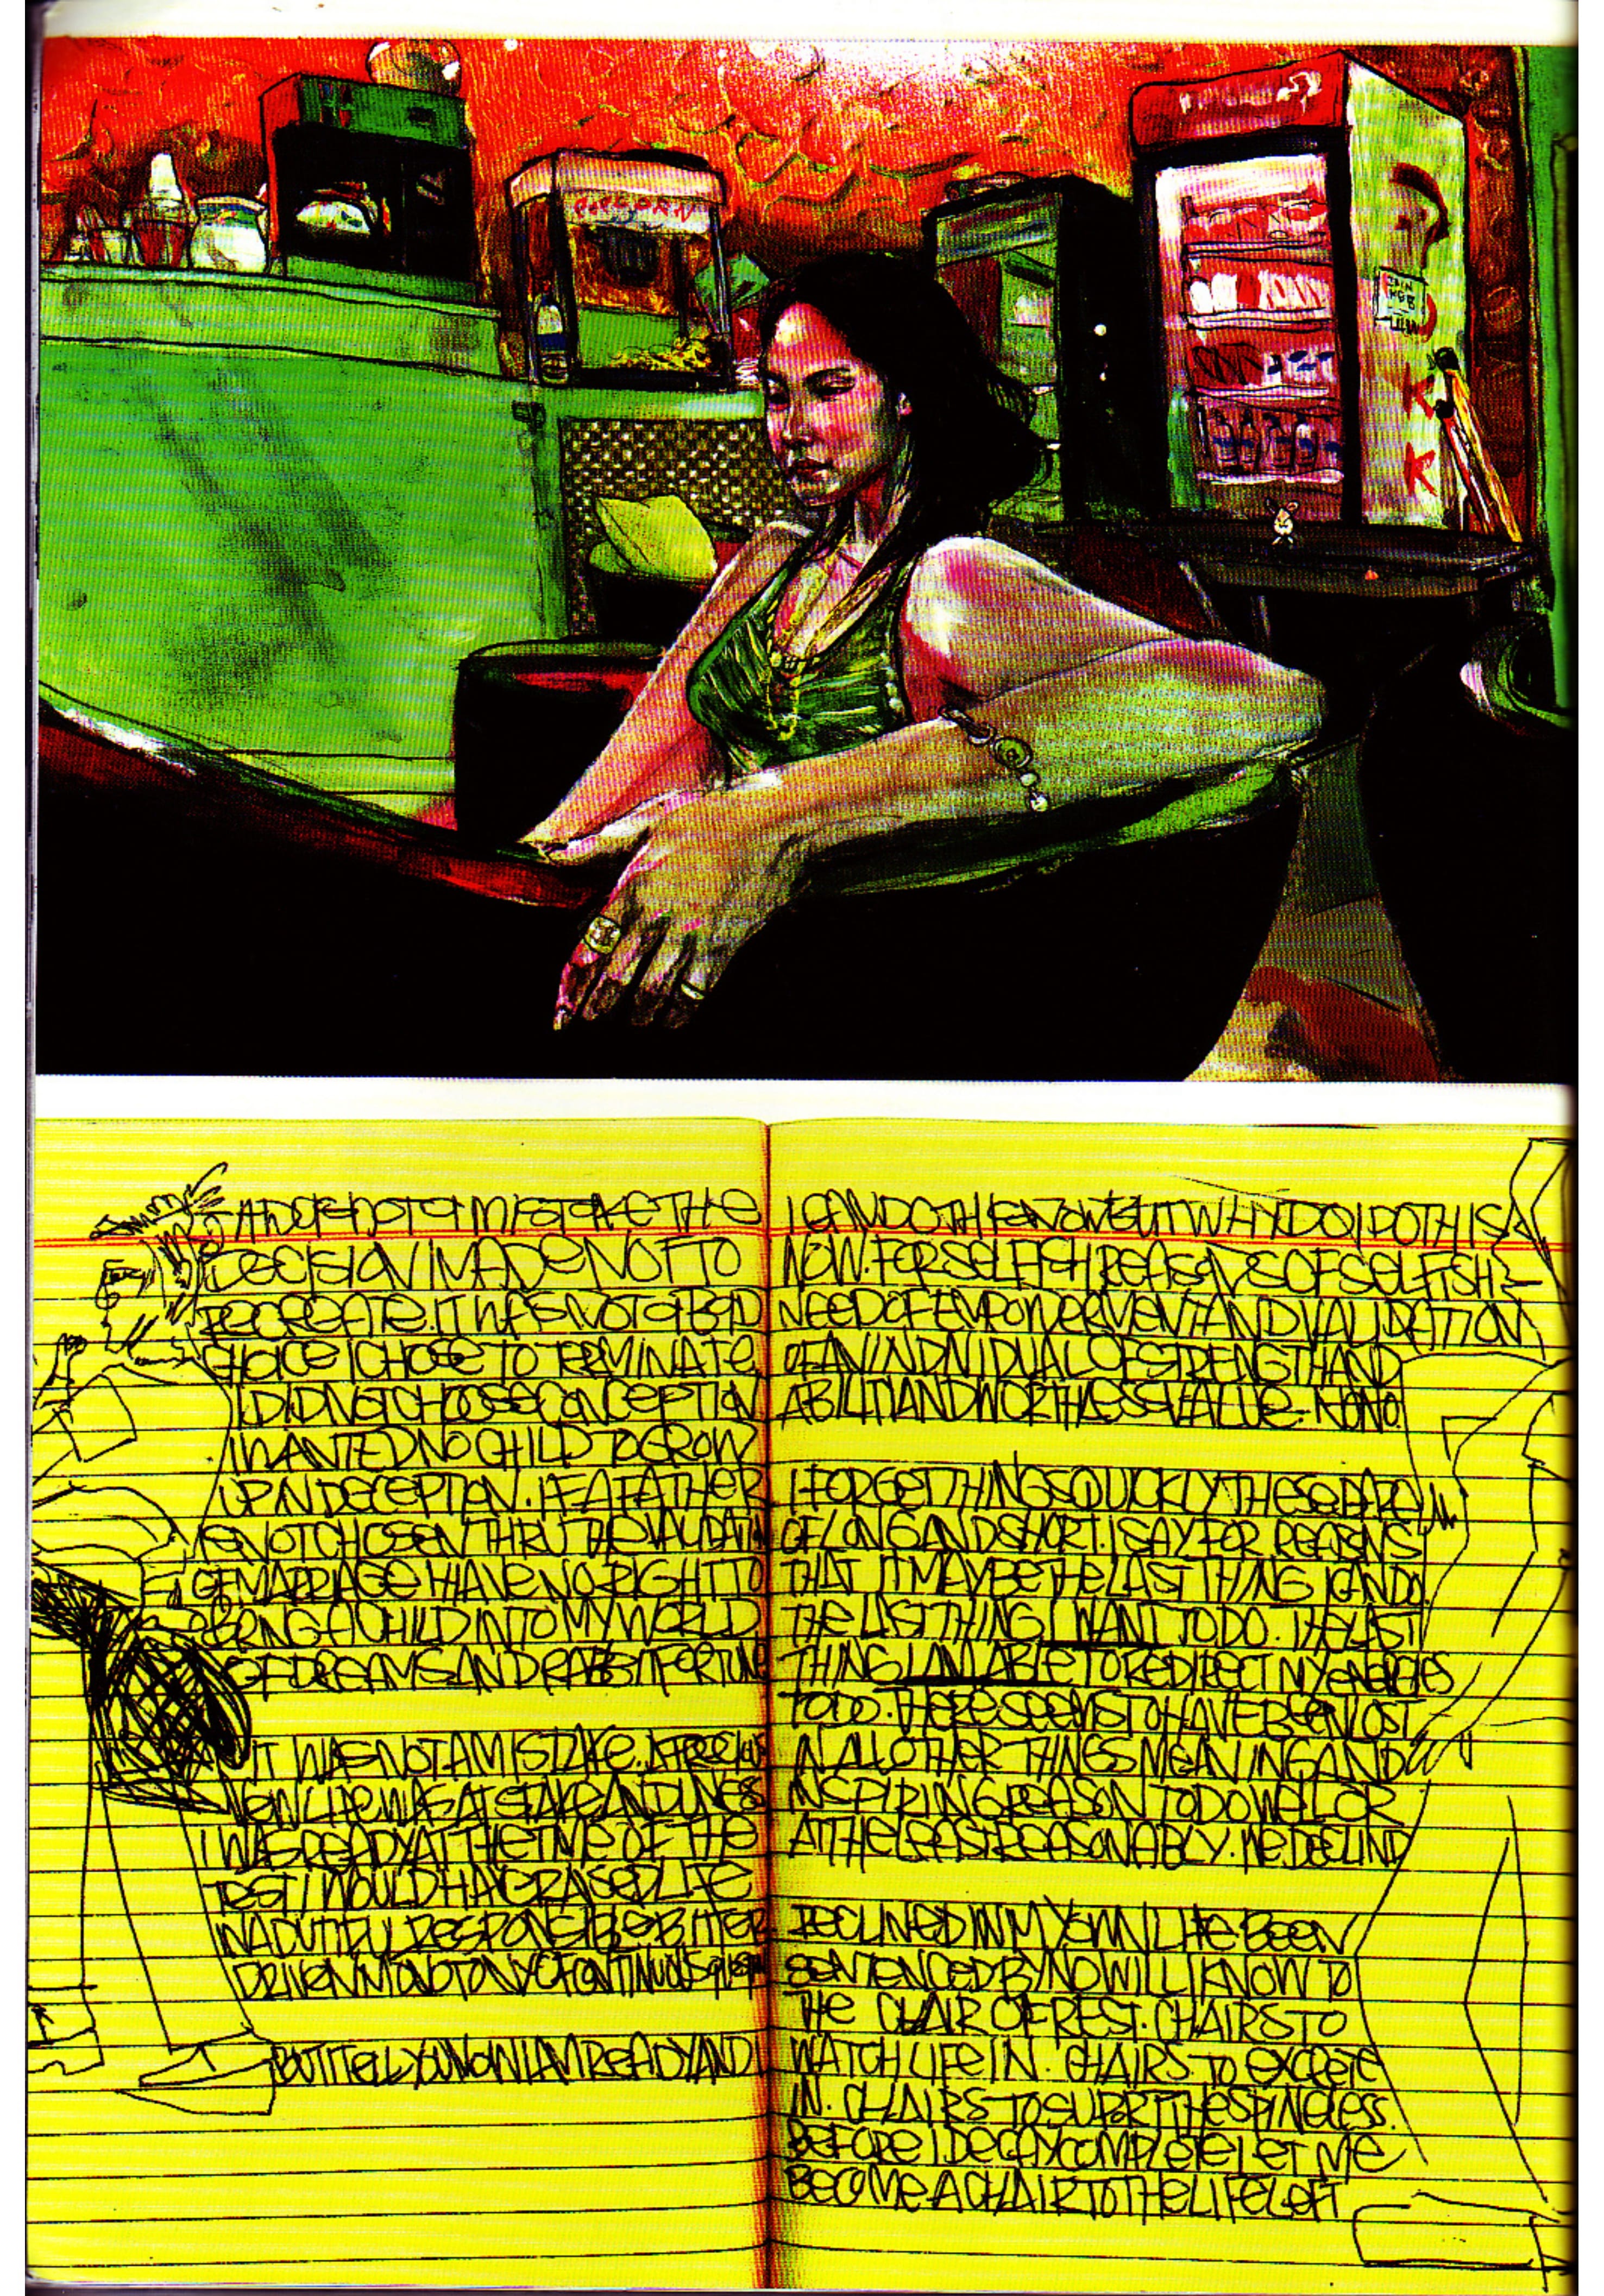 POPCORN
JOIN
KGB
K
K
AND IT IS NOT A MISTAKE THE
DECISION I MADE NOT TO
RECREATE. IT WAS NOT A BAD
CHOICE I CHOSE TO TERMINATE
I DID NOT CHOOSE CONCEPTION
I WANTED NO CHILD TO GROW
UP IN DECEPTION. IF A FATHER
IS NOT CHOSEN THRU THE VALIDATION
OF MARRIAGE I HAVE NO RIGHT TO
BRING A CHILD INTO MY WORLD
OF DREAMS AND RABBIT FORTUNE
IT WAS NOT A MISTAKE.
NEW LIFE WAS AT STAKE AND UNLESS
I WAS READY AT THE TIME OF THE
TEST I WOULD HAVE RAISED LIFE
IN A DUTIFUL RESPONSIBLE BITTER
DRIVEN MONOTONY OF CONTINUOUS
BUT I TELL YOU NOW I AM READY AND
I CAN DO THIS NOW BUT WHY DO I DO THIS
NOW. FOR SELFISH REASONS OF SELFISH
NEED OF EMPOWERMENT AND VALIDATION
OF AN INDIVIDUAL OF STRENGTH AND
ABILITY AND WORTHLESS VALUE. NO NO.
I FORGET THINGS QUICKLY THESE DAYS
OF LONG AND SHORT. I SAY FOR REASONS
THAT IT MAY BE THE LAST THING I CAN DO.
THE LAST THING I WANT TO DO. THE LAST
THING I AM ABLE TO REDIRECT MY ENERGIES
TO DO. THERE SEEMS TO HAVE BEEN LOST
IN ALL OTHER THINGS MEANING AND
INSPIRING REASON TO DO WELL OR
AT THE LEAST REASONABLY. ME DECLIND
RECLINED IN MY OWN LIFE BEEN
SENTENCED BY NO WILL I KNOW TO
THE CHAIR OF REST. CHAIRS TO
WATCH LIFE IN. CHAIRS TO EXCRETE
IN. CHAIRS TO SUPORT THE SPINELESS.
BEFORE I DECAY COMPLETE LET ME
BECOME A CHAIR TO THE LIFE LEFT